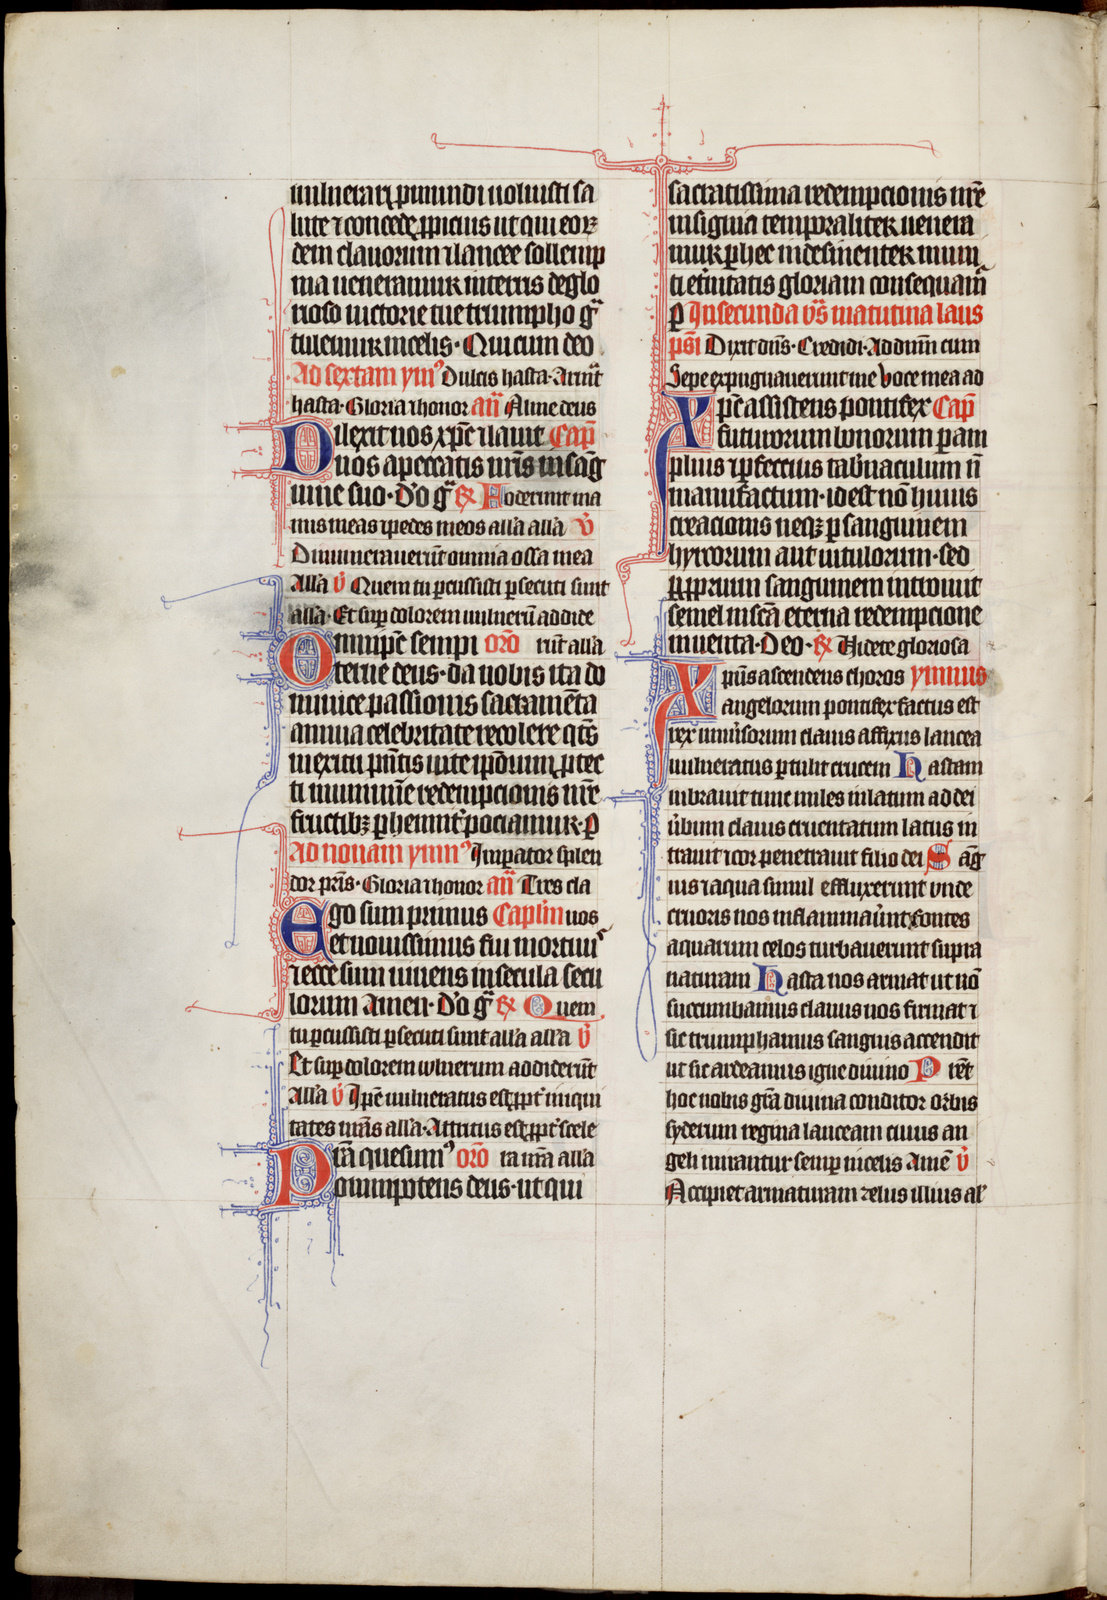 uulnerari ꝑ mundi uoluisti sa
lute ⁊ concede ꝓpicius ut qui eoꝝ
dem clauorum ⁊ lancee sollemp
nia ueneramur in terris de glo
rioso uictorie tue triumpho gͣ
tulemur in celis· Qui cum deo
Ad sextam ymꝰ Dulcis hasta· Armͣt
hasta· Gloria ⁊ honor añ Alme deus
Dilexit nos xp̄c ⁊ lauit Cap̄
nos a peccatis nr̄is in sāg
uine suo· D'o gͣ ℞ Foderunt ma
nus meas ⁊ pedes meos alla alla ℣
Dinumerauerūt omnia ossa mea
Alla ℣ Quem tu ꝑcussisti ꝑsecuti sunt
alla· Et suꝑ dolorem uulnerū addide
Omnipc̄ sempi oro runt alla
terne deus· da nobis ita do
minice passionis sacramēta
annua celebritate recolere qt̄s
in exitu p̄ntis uite ipsorum ꝓtec
ti munimīe redempcionis nr̄e
fructibꝫ ꝑhennit̄ pociamur· P
Ad nonam ymnꝰ Imperator splen
dor pr̄is· Gloria ⁊ honor añ Tres cla
Ego sum primus Caplm̄ uos
et nouissimus fui mortuuꝰ
⁊ ecce sum uiuens in secula secu
lorum Amen· D'o gͣ ℞ Quem
tu ꝑcussisti ꝑsecuti sunt alla alla ℣
Et suꝑ dolorem uulnerum addiderūt
Alla ℣ Ipē uulneratus est ꝓpt̄ iniqui
tates nr̄as alla· Attritus est ꝓpt̄ scele
Pr̄a quesumꝰ oro ra nr̄a alla
omnipotens deus· ut qui
sacratissima redempcionis nr̄e
insignia temporaliter uenera
mur ꝑ hec indesinenter muni
ti et̄nitatis gloriam consequam̄
P In secunda ūs matutina laus
psi Dixit dn̄s· Credidi· Ad dnm̄ cum
Sepe expugnauerunt me Voce mea ad
Xp̄c assistens pontifex Cap̄
futurorum bonorum ꝑ am
plius ⁊ ꝑfectius tab̄naculum n̄
manufactum· id est nō huius
creacionis neqꝫ ꝑ sanguinem
hyrcorum aut uitulorum· sed
ꝑ ꝓprium sanguinem introiuit
semel in scā eterna redempcione
inuenta· Deo· ℞ Uidete gloriosa
Xpūs ascendens choros ymnus
angelorum pontifex factus est
rex uniūsorum clauis affixus lancea
uulneratus ꝑtulit crucem Hastam
uibrauit tunc miles in latum ad dei
ūbium clauis cruentatum latus in
trauit ⁊ cor penetrauit filio dei Sāg
uis ⁊ aqua simul effluxerunt vnde
cruoris nos inflammaūnt fontes
aquarum celos turbauerunt supra
naturam Hasta nos armat ut nō
succumbamus clauus nos firmat ⁊
sic triumphamus sanguis accendit
ut sic ardeamus igne diuino Pret̄
hoc nobis grā diuina conditor orbis
syderum regina lanceam cuius an
geli mirantur semꝑ in celis Amē ℣
Accipiet armaturam zelus illius al'